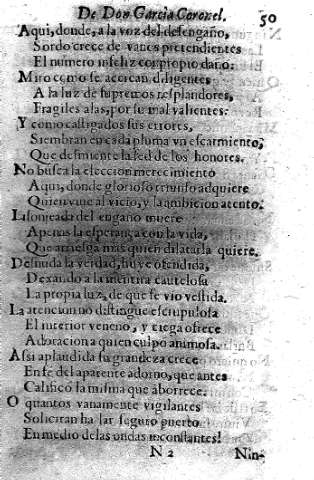 De Don Garcia Coronel. 50
Aqui, donde, a la voz del desengaño,
Sordo crece de vanos pretendientes
El numero infeliz con propio daño.
Miro como se acercan diligentes
A la luz de supremos resplandores,
Fragiles alas, por su mal valientes.
Y como castigados sus errores,
Siembran en cada pluma vn escarmiento,
Que desmiente la sed de los honores.
No busca la eleccion merecimiento
Aqui, donde glorioso triunfo adquiere
Quien viue al vicio, y la ambicion atento.
Lisonjeada del engaño muere
Apenas la esperança con la vida,
Que arriesga mas quien dilatarla quiere.
Desnuda la verdad, huye ofendida,
Dexando a la mentira cautelosa
La propia luz, de que se vio vestida.
La atencion no distingue escrupulosa
El interior veneno, y ciega ofrece
Adoracion a quien culpò animosa.
Assi aplaudida su grandeza crece
En fe del aparente adorno, que antes
Calificò la misma que aborrece.
O quantos vanamente vigilantes
Solicitan hallar seguro puerto
En medio de las ondas inconstantes!
N 2 Nin-